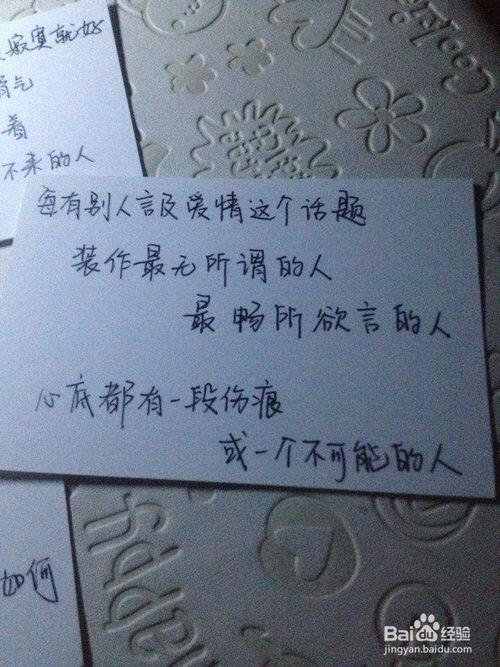 寂寞就好
气
着
不来的人
每有别人言及爱情这个话题
装作最无所谓的人
最畅所欲言的人
心底都有一段伤痕
或一个不可能的人
如何
Happy
Bai du 经验
jingyan.baidu.com